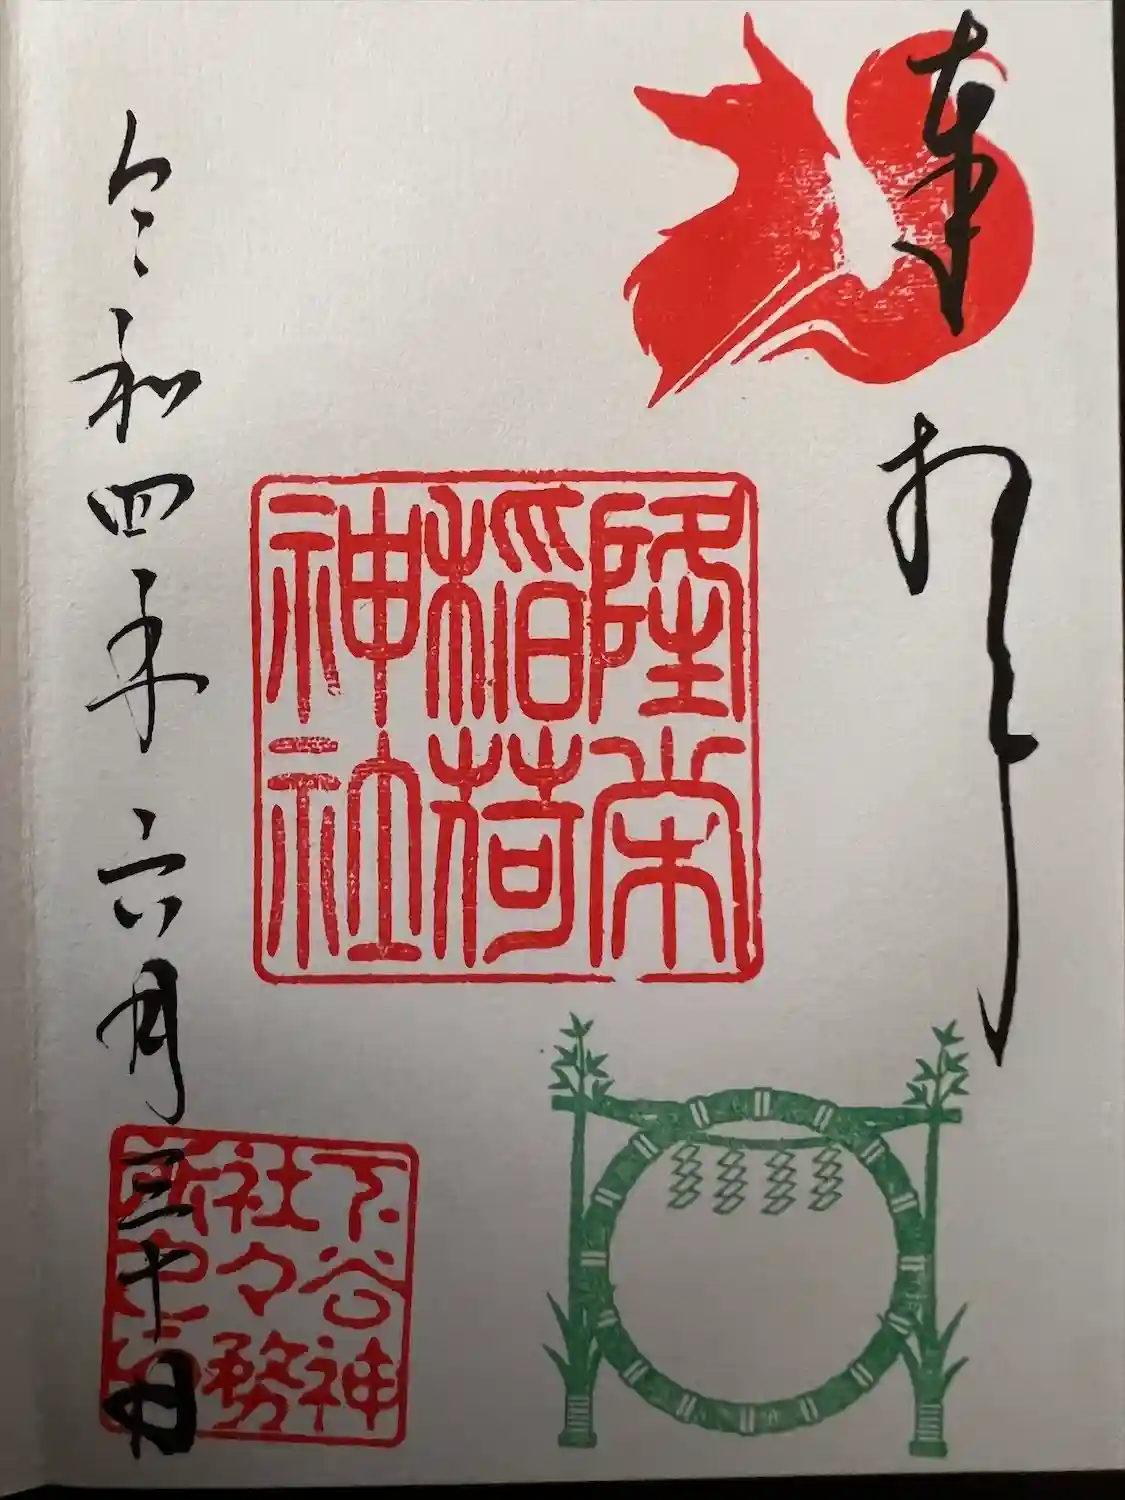 奉拝
隆栄
稲荷
神社
下谷神
社々務
所之印
令和四年六月三十日